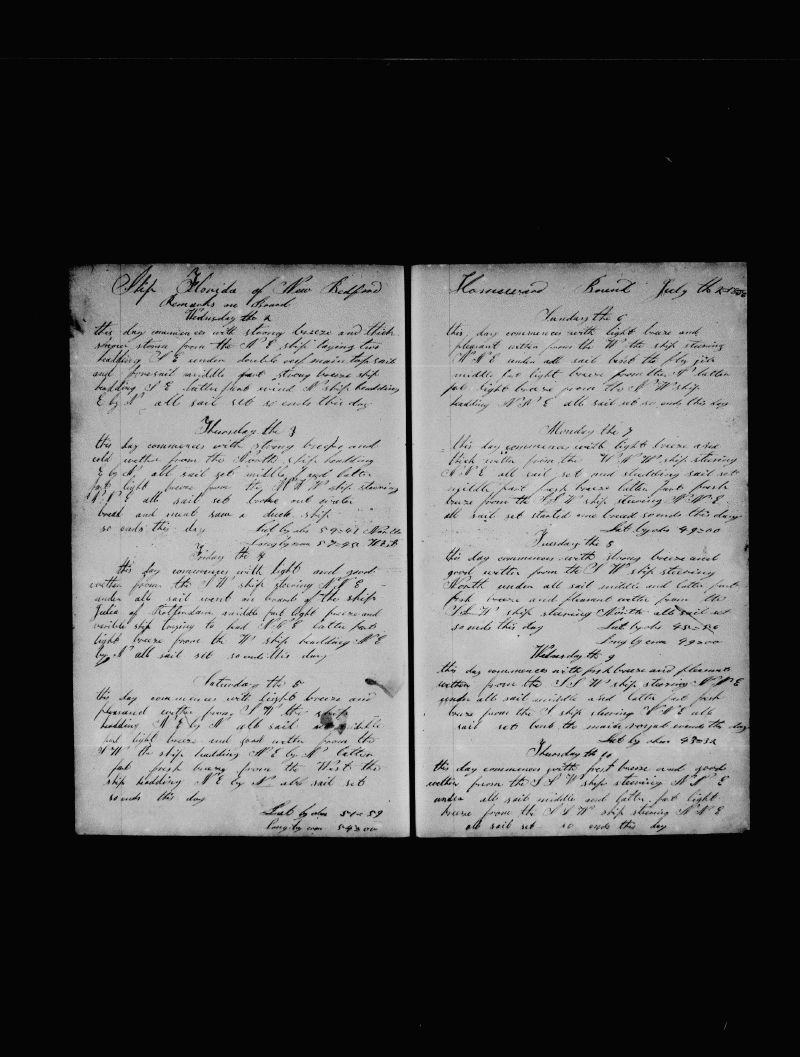 Ship Florida of New Bedford
Remarks on Board
Wednesday the 2
this day commences with strong breeze and thick
snow storm from the N E ship laying two
heading S E under double reef main top sail
and foresail middle part strong breeze ship
heading S E latter part wind N ship heading
E by N all sail set so ends this day
Thursday the 3
this day commences with strong breeze and
cold wether from the North ship heading
E by N all sail set middle and latter
part light breeze from the W N W ship steering
N N E all sail set broke out water
bread and meat saw a duch ship
so ends this day Lat by obs 54=41
Long by cron 57=45 West
Friday the 4
this day commences with light and good
wether from the S W ship steering N N E
under all sail went on board of the ship
Julia of Rotterdam middle part light breeze and
ship laying to hed N E latter part
light breeze from the W ship heading N E
by N all sail set so ends this day
Saturday the 5
this day commences with light breeze and
pleasand wether from S W the ship
heading N E by N all sail middle
part light breeze and good wether from the
W the ship heading N E by N latter
part fresh breeze from the West the
ship heading N E by N all sail set
so ends this day
Lat by obs 51=59
Long by cron 54=00
Homeward Bound July the
Sunday the 6
this day commences with light breeze and
pleasant wether from the W the ship steering
N N E under all sail bent the fly jib
middle part light breeze from the N latter
part light breeze from the N W ship
heading N N E all sail set so ends this day
Monday the 7
this day commences with light breeze and
thick wether from the W N W ship steering
N N E all sail set and studding sail set
middle part fresh breeze latter part fresh
breze from the S S W ship steering N N E
all sail set started one bread so ends this day
Lat by obs 49=00
Tuesday the 8
this day commences with strong breeze and
good wether from the S W ship steering
North under all sail middle and latter part
fresh breeze and pleasant wether from the
S W ship steering North all sail set
so ends this day Lat by obs 45=56
Long by cron 49=00
Wednesday the 9
this day commences with fresh breeze and pleasant
wether from the S S W ship steering N N E
under all sail middle and latter part fresh
breze from the S ship steering N N E all
sail set bent the main royal so ends the day
Lat by obs 43=32
Thursday the 10
this day commences with fresh breeze and good
wether from the S S W ship steering N N E
under all sail middle and latter part light
breeze from the S S W ship steering N N E
all sail set so ends this day